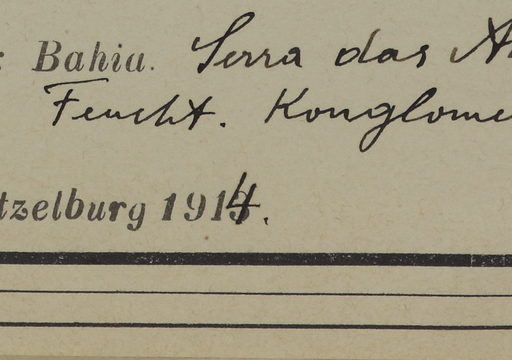 : Bahia. Serra das A
Feucht. Konglome
tzelburg 1914.